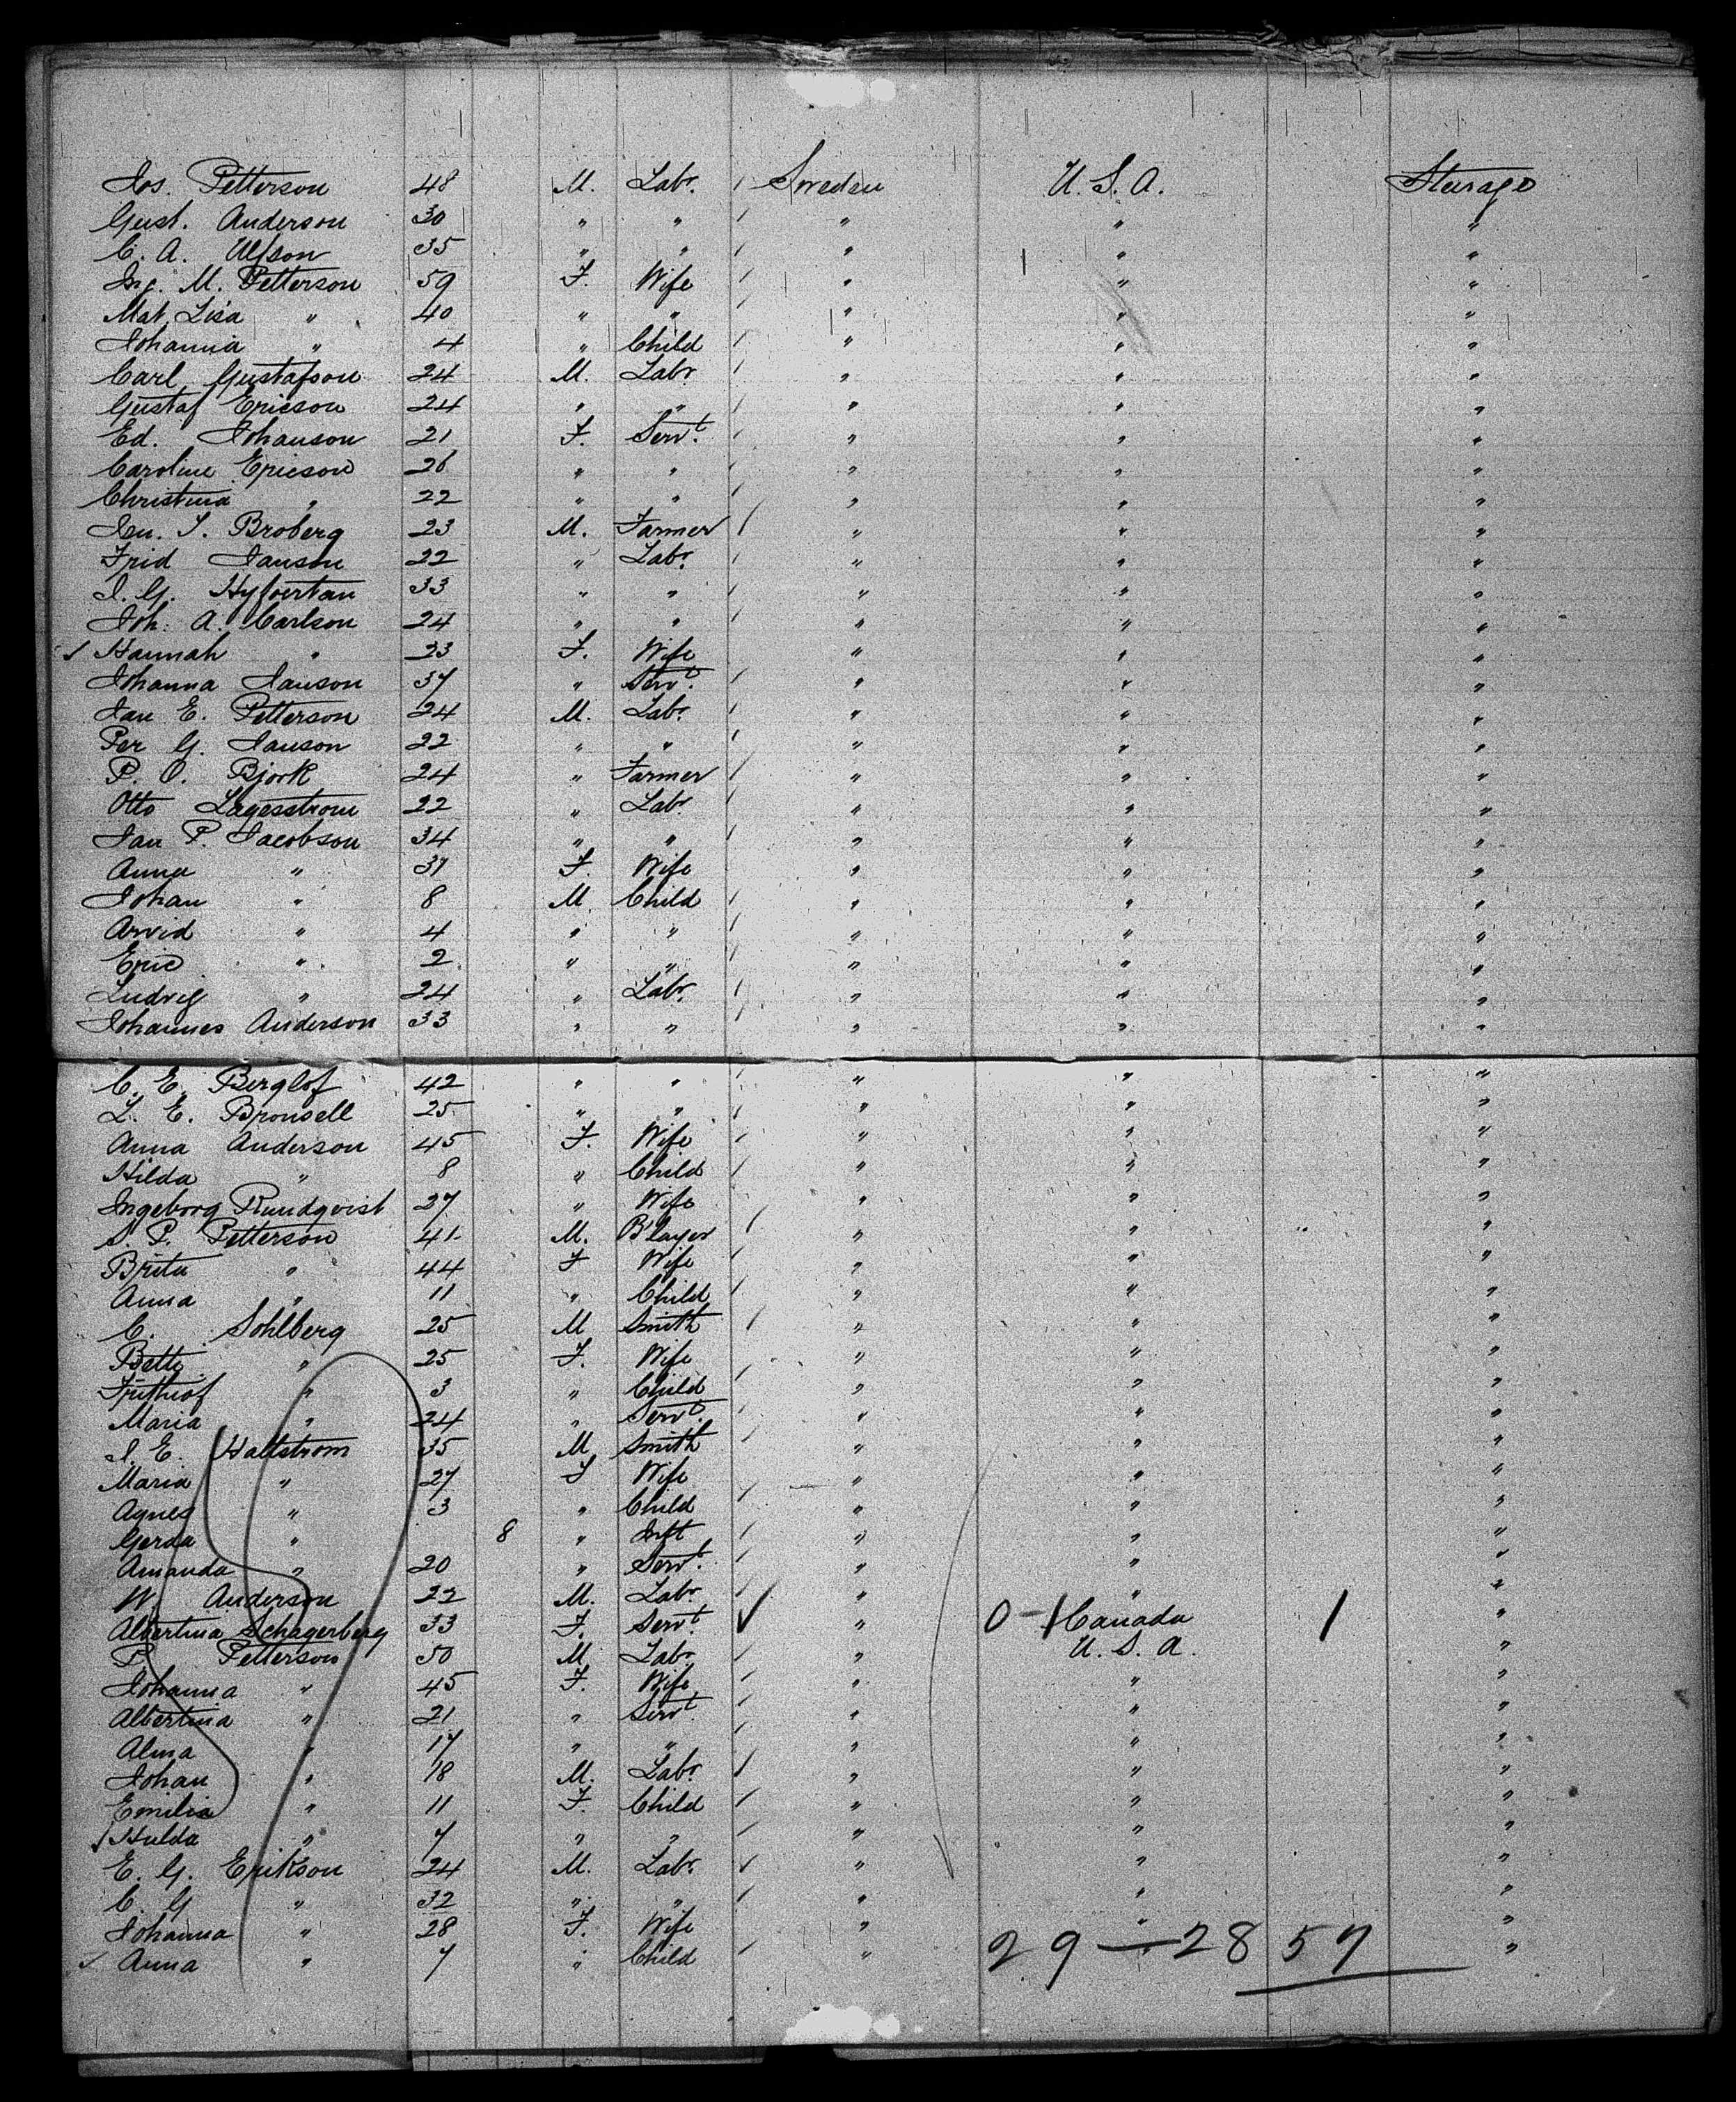 Jos. Petterson 48 M. Labr. Sweden U.S.A. Steerage
Gust. Anderson 30 " " " " "
C. A. Ulfson 35 " " " " "
Ing. M. Petterson 59 F. Wife " " "
Mat. Lisa " 40 " " " " "
Johanna " 4 " Child " " "
Carl Gustafson 24 M. Labr. " " "
Gustaf Ericson 24 " " " " "
Ed. Johanson 21 F. Servt. " " "
Caroline Ericson 26 " " " " "
Christina " 22 " " " " "
Jen. S. Broberg 23 M. Farmer " " "
Frid Janson 22 " Labr. " " "
J. G. 33 " " " " "
Joh. A. Carlson 24 " " " " "
Hannah " 23 F. Wife " " "
Johanna Janson 37 " Servt. " " "
Jan E. Petterson 24 M. Labr. " " "
Per G. Janson 22 " " " " "
P. O. Bjork 24 " Farmer " " "
Otto Lagesstrom 22 " Labr " " "
Jan P. Jacobson 34 " " " " "
Anna " 37 F. Wife " " "
Johan " 8 M. Child " " "
Arvid " 4 " " " " "
Eric " 2 " " " " "
Ludvig " 24 " Labr. " " "
Johannes Anderson 33 " " " " "
C. E. Berglof 42 " " " " "
L. E. Bronsell 25 " " " " "
Anna Anderson 45 F. Wife " " "
Hilda " 8 " Child " " "
Ingeborg Rundqvist 27 " Wife " " "
S. P. Petterson 41 M. B'layer " " "
Brita " 44 F Wife " " "
Anna " 11 " Child " " "
C. Sohlberg 25 M Smith " " "
Betti " 25 F. Wife " " "
Frithiof " 3 " Child " " "
Maria " 24 " Servt. " " "
J. E. Hallstrom 35 M. Smith " " "
Maria " 27 F Wife " " "
Agnes " 3 " Child " " "
Gerda " 8 " Inft " " "
Amanda " 20 " Servt. " " "
W. Anderson 22 M. Labr. " " "
Albertina Schagerberg 33 F. Servt. " 0-1 Canada 1 "
P. Petterson 50 M. Labr " U.S.A. "
Johanna " 45 F. Wife " " "
Albertina " 21 " Servt. " " "
Alma " 17 " " " " "
Johan " 18 M. Labr. " " "
Emilia " 11 F. Child " " "
Hulda " 7 " " " " "
E. G. Erikson 24 M. Labr. " " "
C. G " 32 " " " " "
Johanna " 28 F. Wife " " "
Anna " 7 " Child " 29-28 57 "